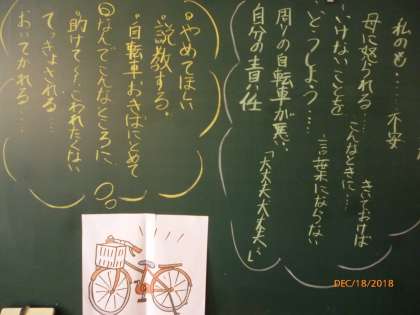 私の色……不安
母に怒られる…
こんなときに…
きいておけば
いけないことを
どうしよう…
言葉にならない
周りの自転車が悪い
「大丈夫大丈夫」
自分の責任
やめてほしい
説教する。
自転車おきばにとめて
なんでこんなところに
助けて〜こわれたくない
てっきょされる…
おいてかれる…
DEC/18/2018